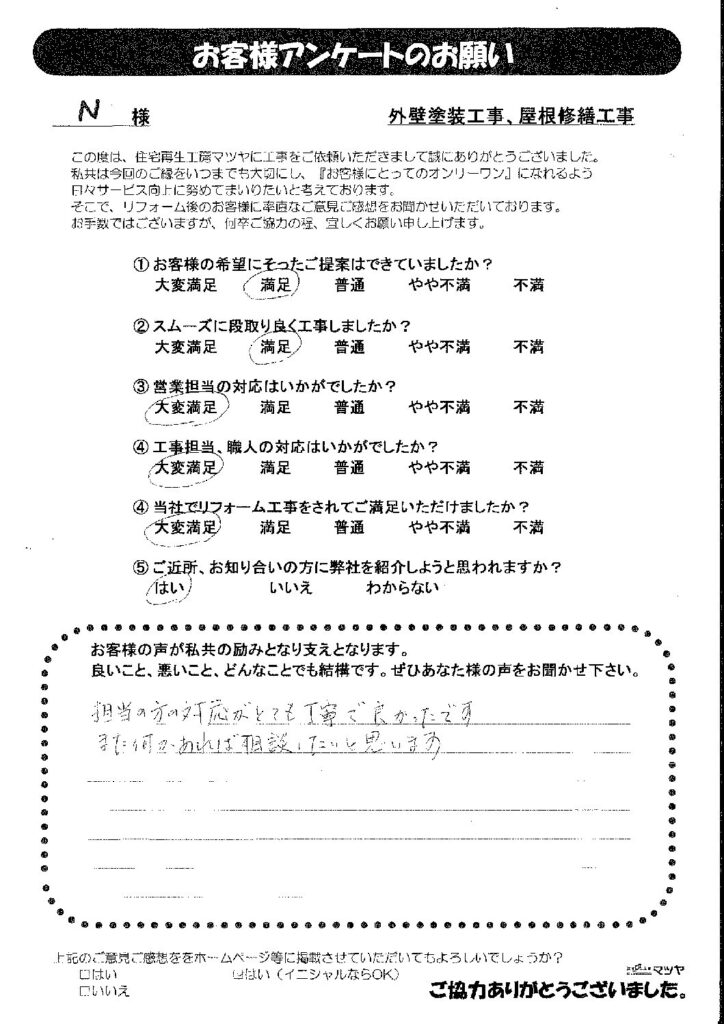 お客様アンケートのお願い
N 様
外壁塗装工事、屋根修繕工事
この度は、住宅再生工房マツヤに工事をご依頼いただきまして誠にありがとうございました。
私共は今回のご縁をいつまでも大切にし、『お客様にとってのオンリーワン』になれるよう
日々サービス向上に努めてまいりたいと考えております。
そこで、リフォーム後のお客様に率直なご意見ご感想をお聞かせいただいております。
お手数ではございますが、何卒ご協力の程、宜しくお願い申し上げます。
① お客様の希望にそったご提案はできていましたか？
大変満足 満足 普通 やや不満 不満
② スムーズに段取り良く工事しましたか？
大変満足 満足 普通 やや不満 不満
③ 営業担当の対応はいかがでしたか？
大変満足 満足 普通 やや不満 不満
④ 工事担当、職人の対応はいかがでしたか？
大変満足 満足 普通 やや不満 不満
④ 当社でリフォーム工事をされてご満足いただけましたか？
大変満足 満足 普通 やや不満 不満
⑤ ご近所、お知り合いの方に弊社を紹介しようと思われますか？
はい いいえ わからない
お客様の声が私共の励みとなり支えとなります。
良いこと、悪いこと、どんなことでも結構です。ぜひあなた様の声をお聞かせ下さい。
担当の方の対応がとても丁寧で良かったです
また何かあれば相談したいと思います
上記のご意見ご感想ををホームページ等に掲載させていただいてもよろしいでしょうか？
□はい ☑はい（イニシャルならOK）
□いいえ
マツヤ
ご協力ありがとうございました。